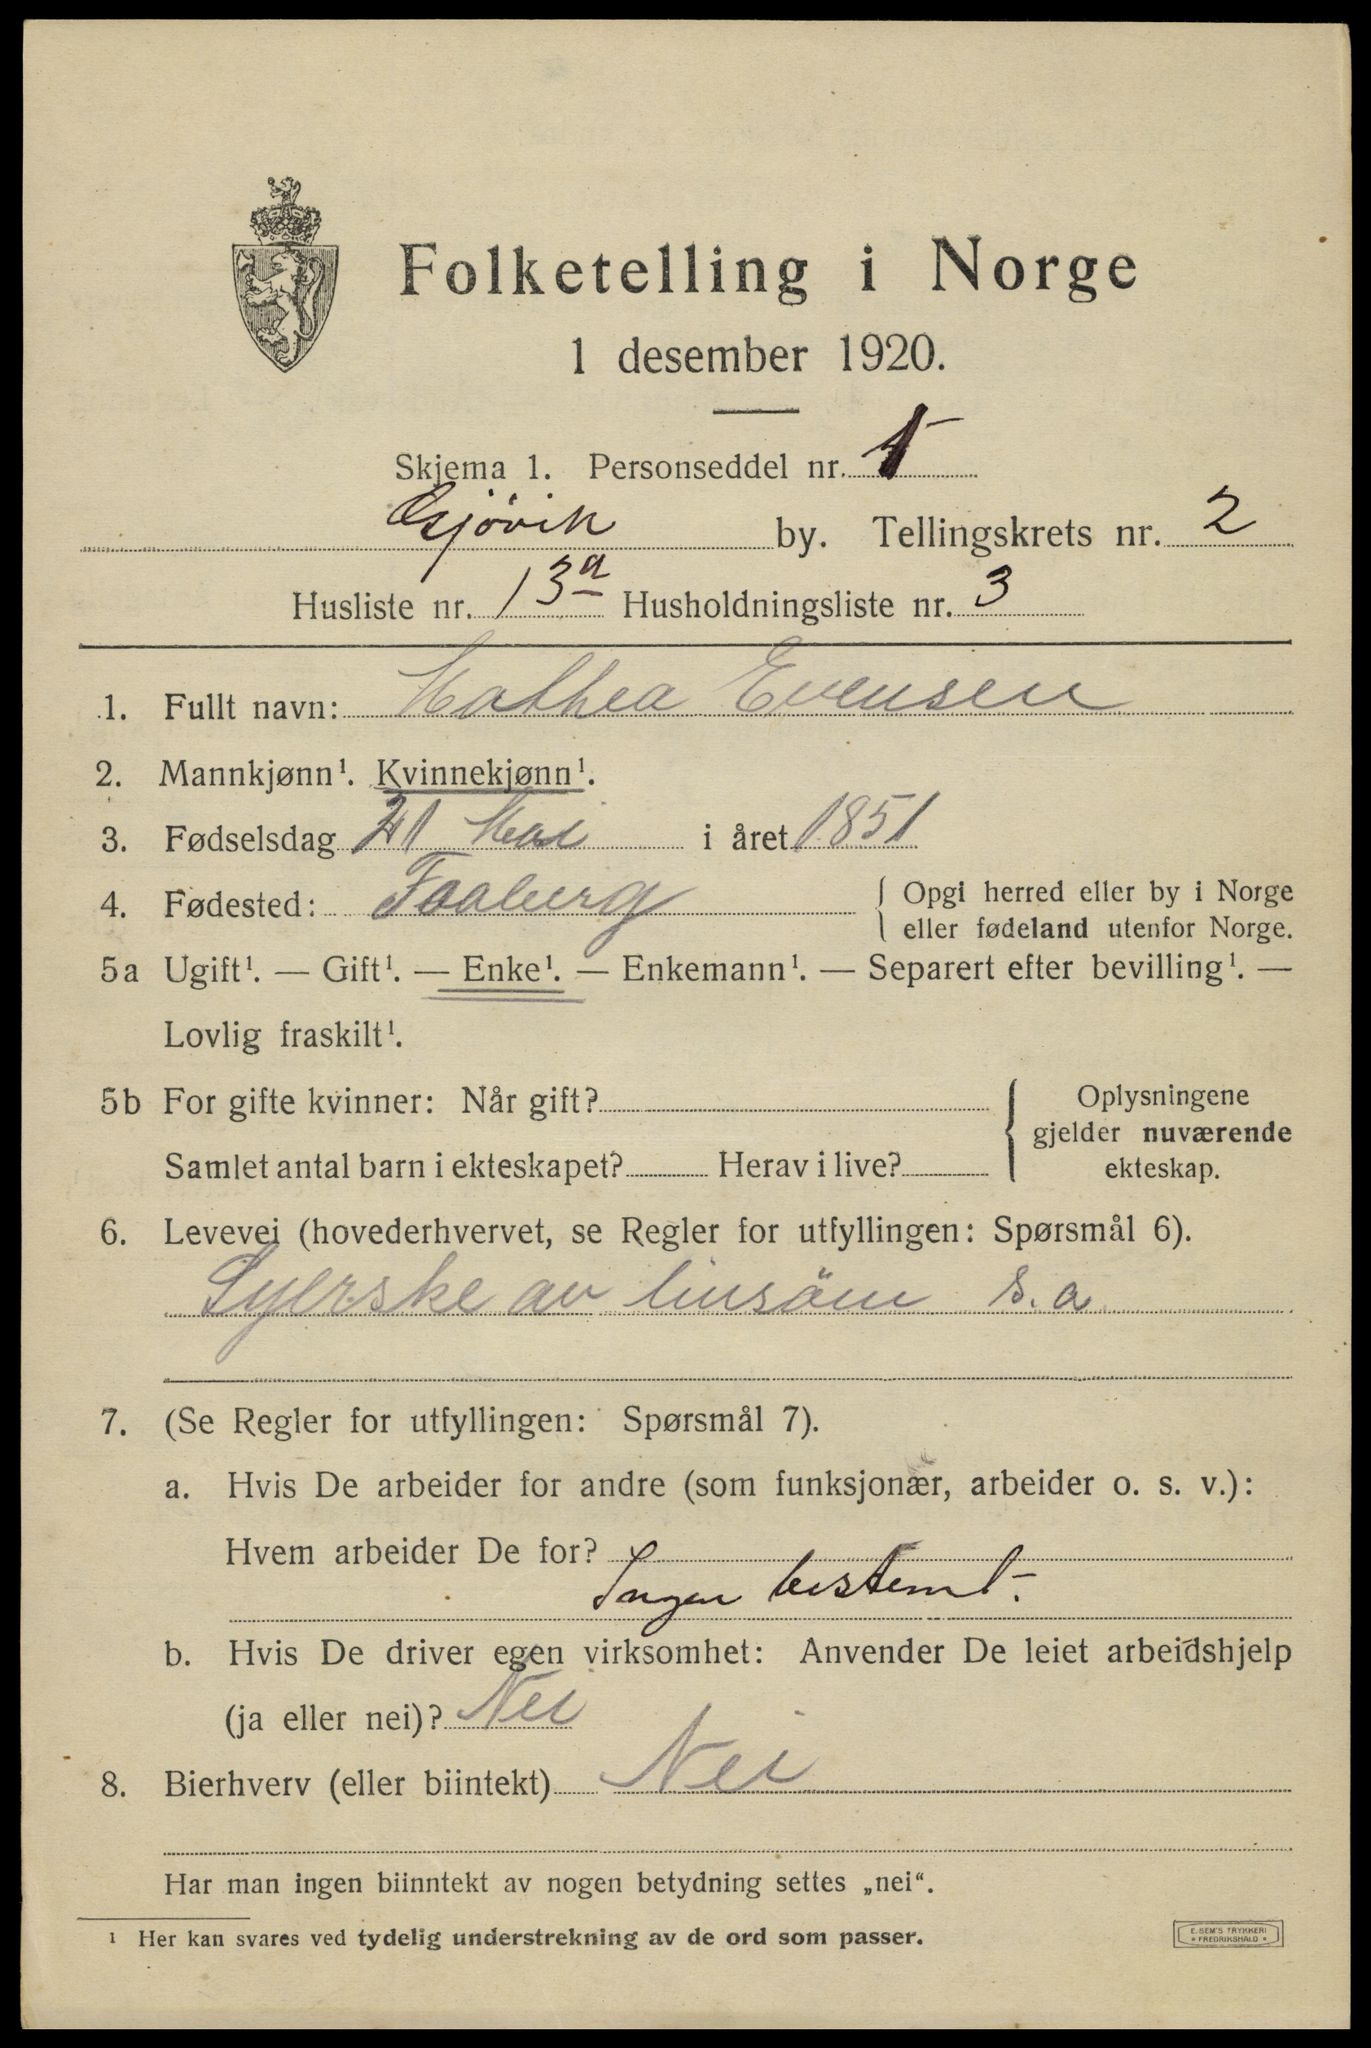 Folketelling i Norge
1 desember 1920.
Skjema 1. Personseddel nr. 1
Gjövik by. Tellingskrets nr. 2
Husliste nr. 13a Husholdningsliste nr. 3
1. Fullt navn: Mathea Evensen
2. Mannkjønn¹. Kvinnekjønn¹.
3. Fødselsdag 21 Mai i året 1851
4. Fødested: Faaberg { Opgi herred eller by i Norge
eller fødeland utenfor Norge.
5a Ugift¹. — Gift¹. — Enke¹. — Enkemann¹. — Separert efter bevilling¹. —
Lovlig fraskilt¹.
5b For gifte kvinner: Når gift? { Oplysningene
gjelder nuværende
Samlet antal barn i ekteskapet? Herav i live? ekteskap.
6. Levevei (hovederhvervet, se Regler for utfyllingen: Spørsmål 6).
Syerske av linsöm s.a.
7. (Se Regler for utfyllingen: Spørsmål 7).
a. Hvis De arbeider for andre (som funksjonær, arbeider o. s. v.):
Hvem arbeider De for?
Ingen bestemt.
b. Hvis De driver egen virksomhet: Anvender De leiet arbeidshjelp
(ja eller nei)? Nei
8. Bierhverv (eller biintekt) Nei
Har man ingen biinntekt av nogen betydning settes „nei“.
¹ Her kan svares ved tydelig understrekning av de ord som passer.
E. SEM'S TRYKKERI
* FREDRIKSHALD *